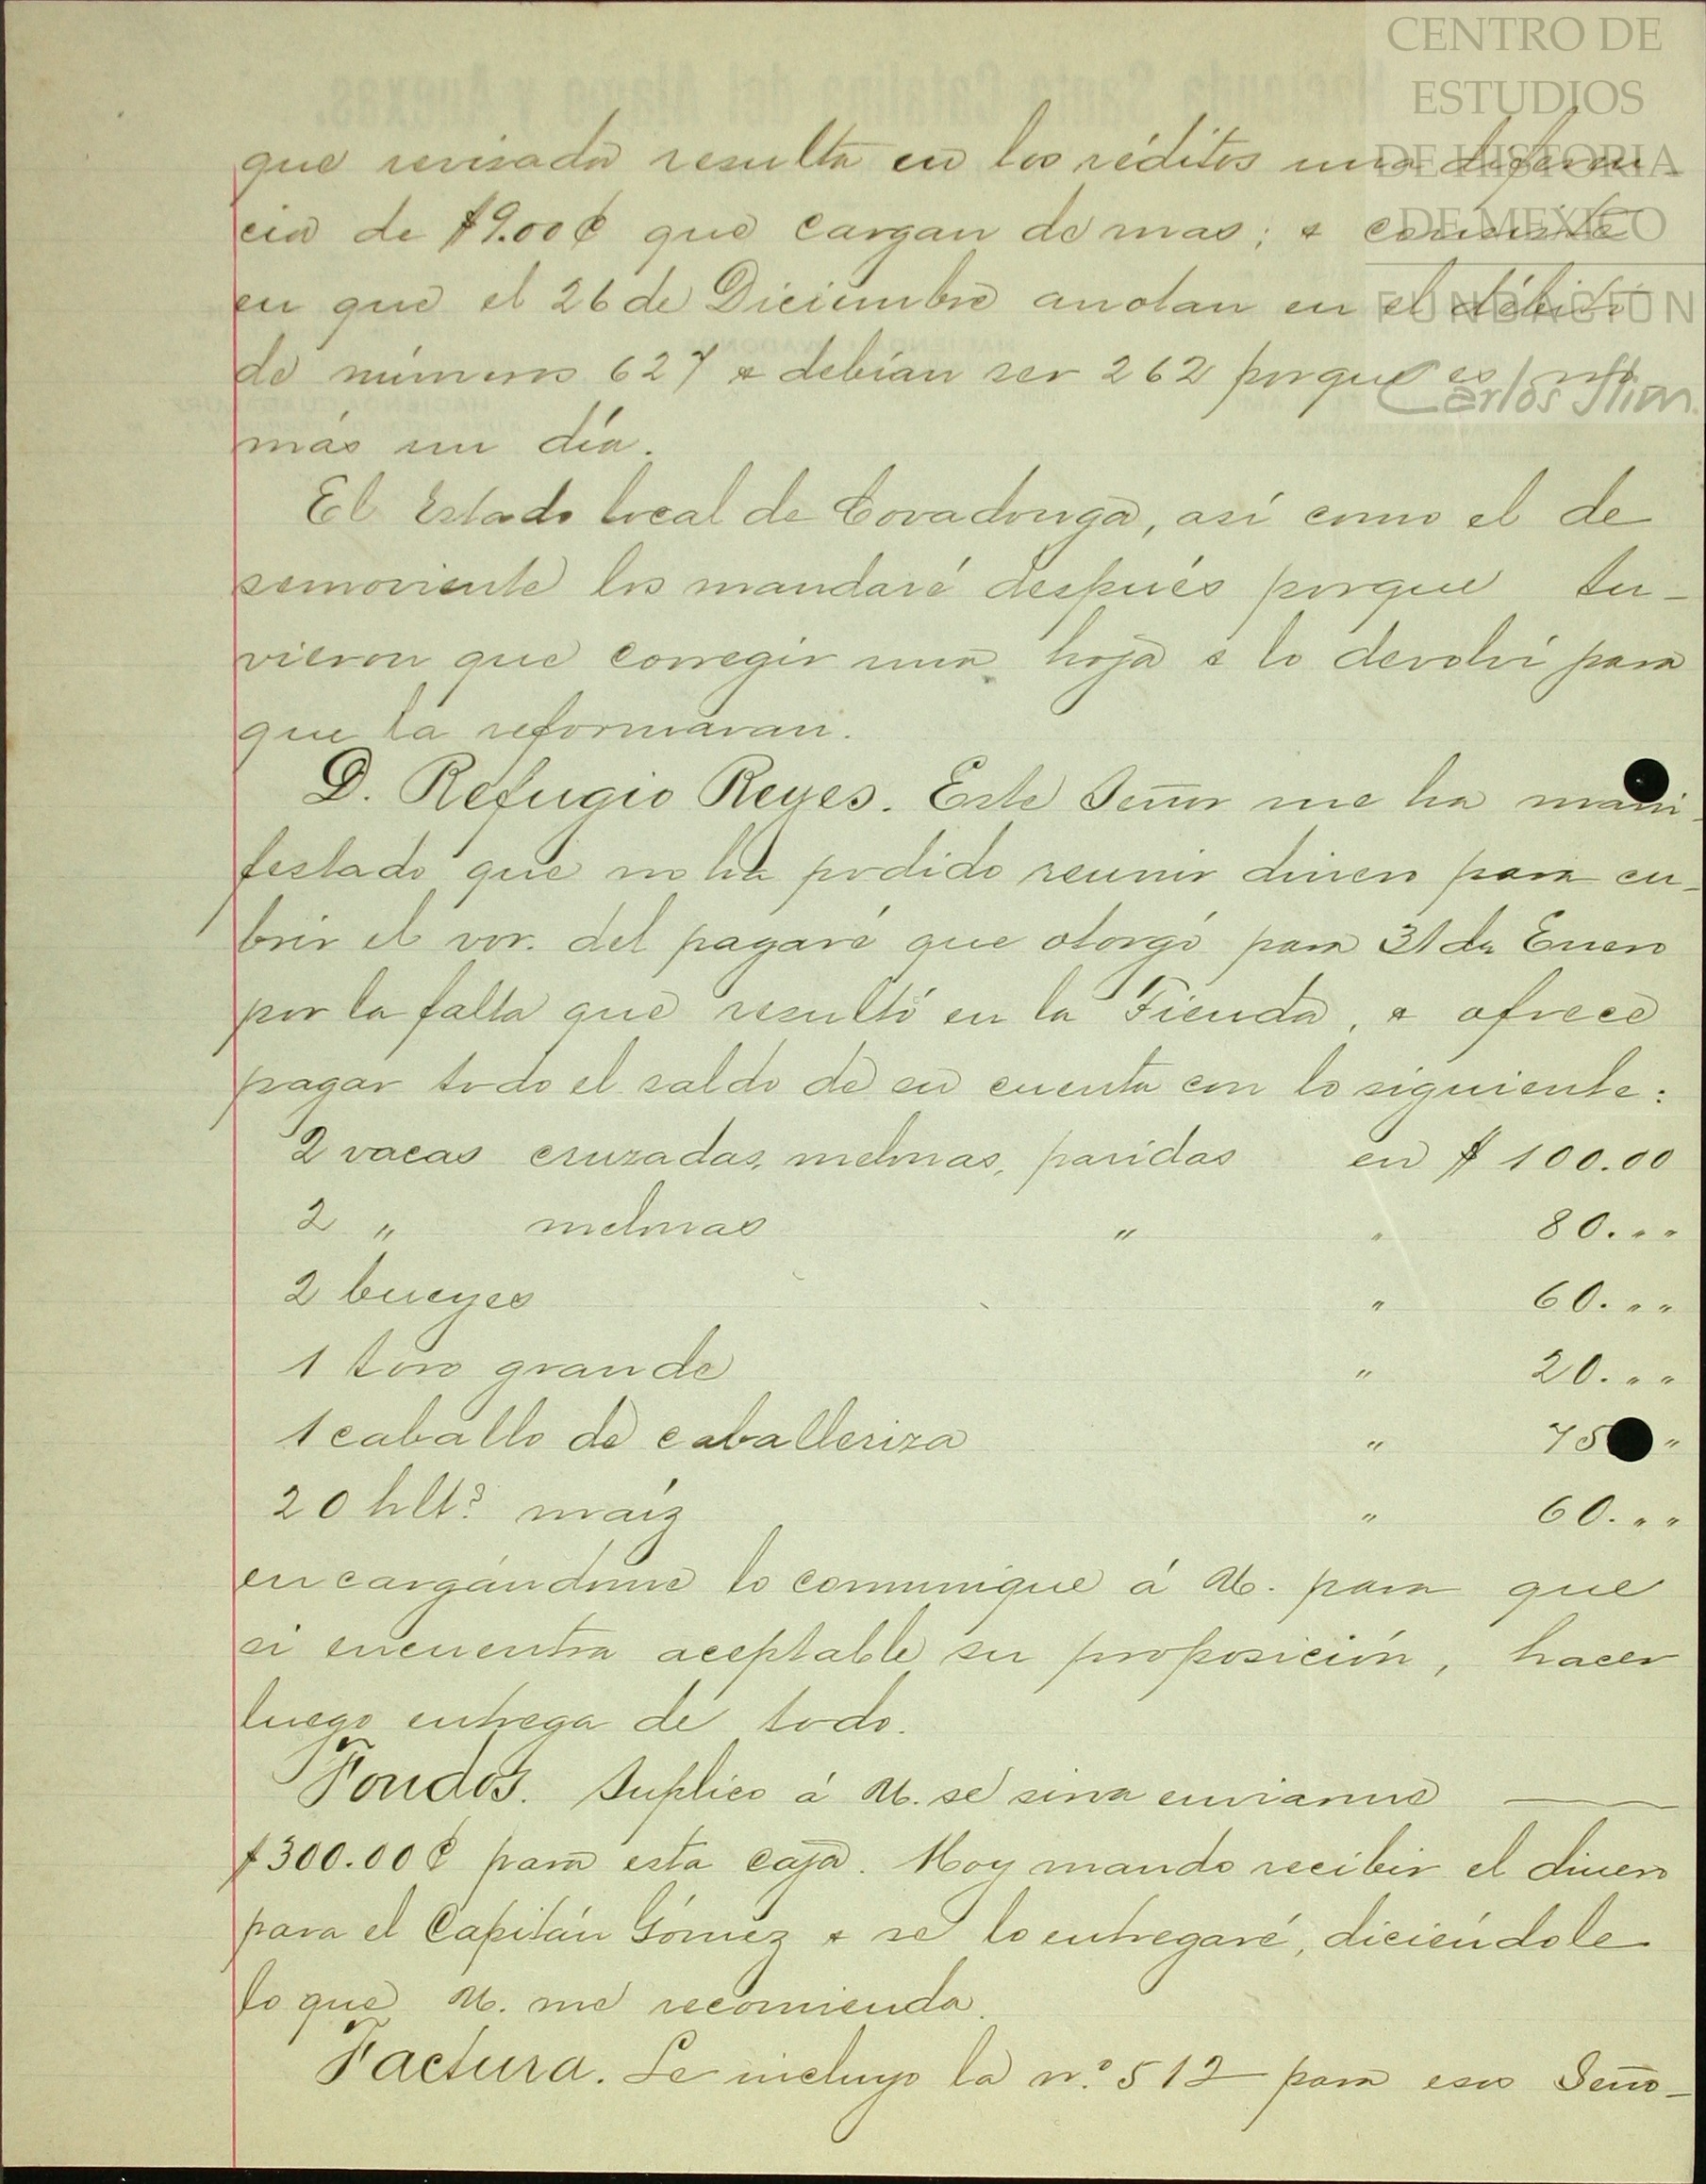 CENTRO DE
ESTUDIOS
DE HISTORIA
DE MEXICO
FUNDACIÓN
Carlos Slim
que revisada resulta en los réditos una diferen-
cia de $9.00¢ que cargan de mas; & consiste
en que el 26 de Diciembre anotan en el débito
de números 627 & debían ser 262 porque es no
más un día.
El Estado local de Covadonga, así como el de
semoviente los mandaré después porque tu-
vieron que corregir una hoja & lo devolví para
que la reformaran.
D. Refugio Reyes. Este Señor me ha mani-
festado que no ha podido reunir dinero para cu-
brir el vor. del pagaré que otorgó para 31 de Enero
por la falta que resultó en la Tienda, & ofrece
pagar todo el saldo de su cuenta con lo siguiente:
2 vacas cruzadas, melonas, paridas en $ 100.00
2 " melonas " " 80. " "
2 bueyes " 60. " "
1 toro grande " 20. " "
1 caballo de caballeriza " 75 "
20 hlts maíz " 60. " "
encargándome lo comunique á U. para que
si encuentra aceptable su proposición, hacer
luego entrega de todo.
Fondos. Suplico á U. se sirva enviarme
$300.00¢ para esta caja. Hoy mando recibir el dinero
para el Capitán Gómez & se lo entregaré, diciéndole
lo que U. me recomienda.
Factura. Le incluyo la n.º 512 para esos Seño-